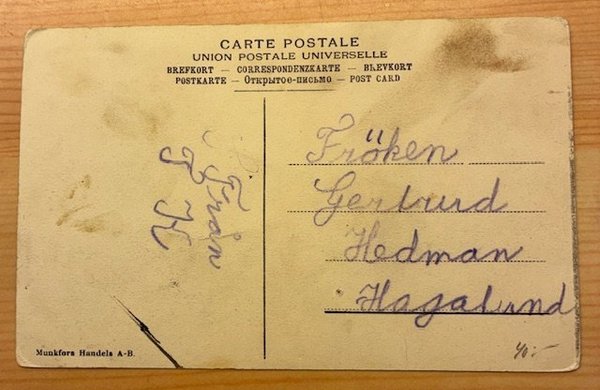 CARTE POSTALE
UNION POSTALE UNIVERSELLE
BREFKORT – CORRESPONDENZKARTE – BLEVKORT
POSTKARTE – Открытое-письмо – POST CARD
Från
F K
Fröken
Gertrud
Hedman
Hagalund
Munkfors Handels A-B.
40:-